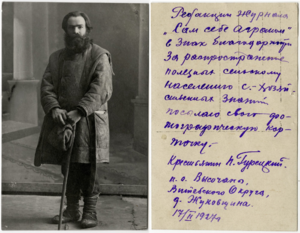 Редакции журнала
"Сам себе Агроном"
в знак благодарности
За распространение
полезных сельскому
населению с.-хозяй-
ственных знаний
посылаю свою фо-
тографическую кар-
точку.
Крестьянин
п. о. Высочаны,
Витебского Округа,
д. Жуковщина
17/II 1927г.